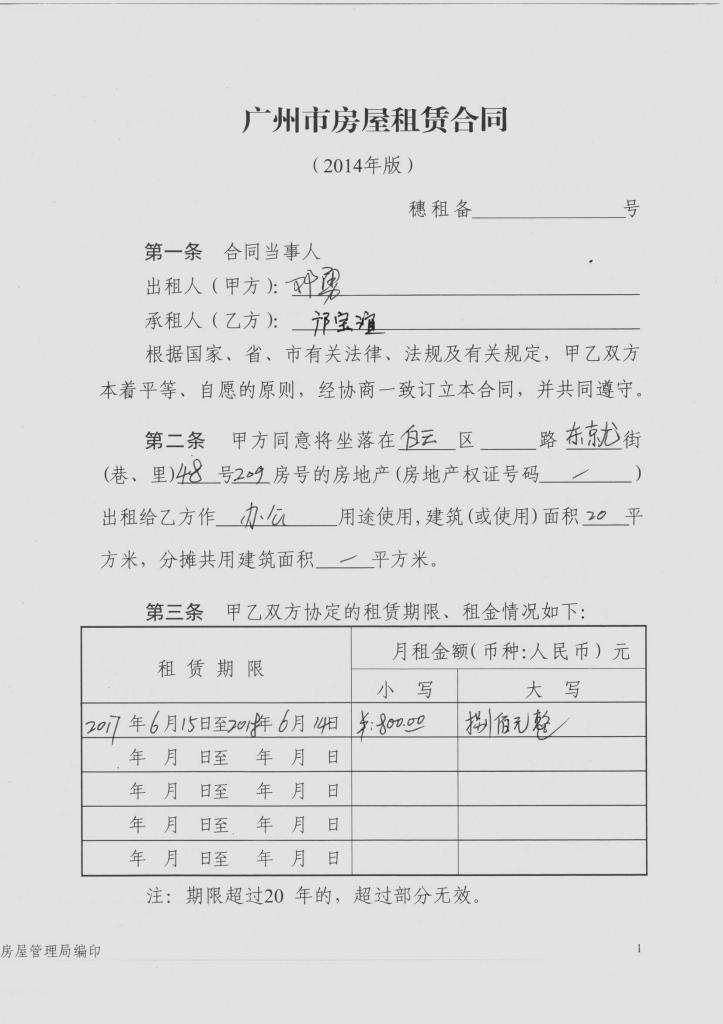 广州市房屋租赁合同
（2014年版）
穗租备＿＿＿号
第一条 合同当事人
出租人（甲方）：邓勇
承租人（乙方）：邝宝谊
根据国家、省、市有关法律、法规及有关规定，甲乙双方
本着平等、自愿的原则，经协商一致订立本合同，并共同遵守。
第二条 甲方同意将坐落在白云区＿＿＿路东京龙街
(巷、里)48号209房号的房地产(房地产权证号码 / )
出租给乙方作办公用途使用,建筑(或使用)面积20平
方米，分摊共用建筑面积 / 平方米。
第三条 甲乙双方协定的租赁期限、租金情况如下：
租赁期限 月租金额(币种:人民币)元
小写 大写
2017年6月15日至2018年6月14日 ¥:800.00 捌佰元整
年 月 日至 年 月 日
年 月 日至 年 月 日
年 月 日至 年 月 日
年 月 日至 年 月 日
注：期限超过20 年的，超过部分无效。
房屋管理局编印 1